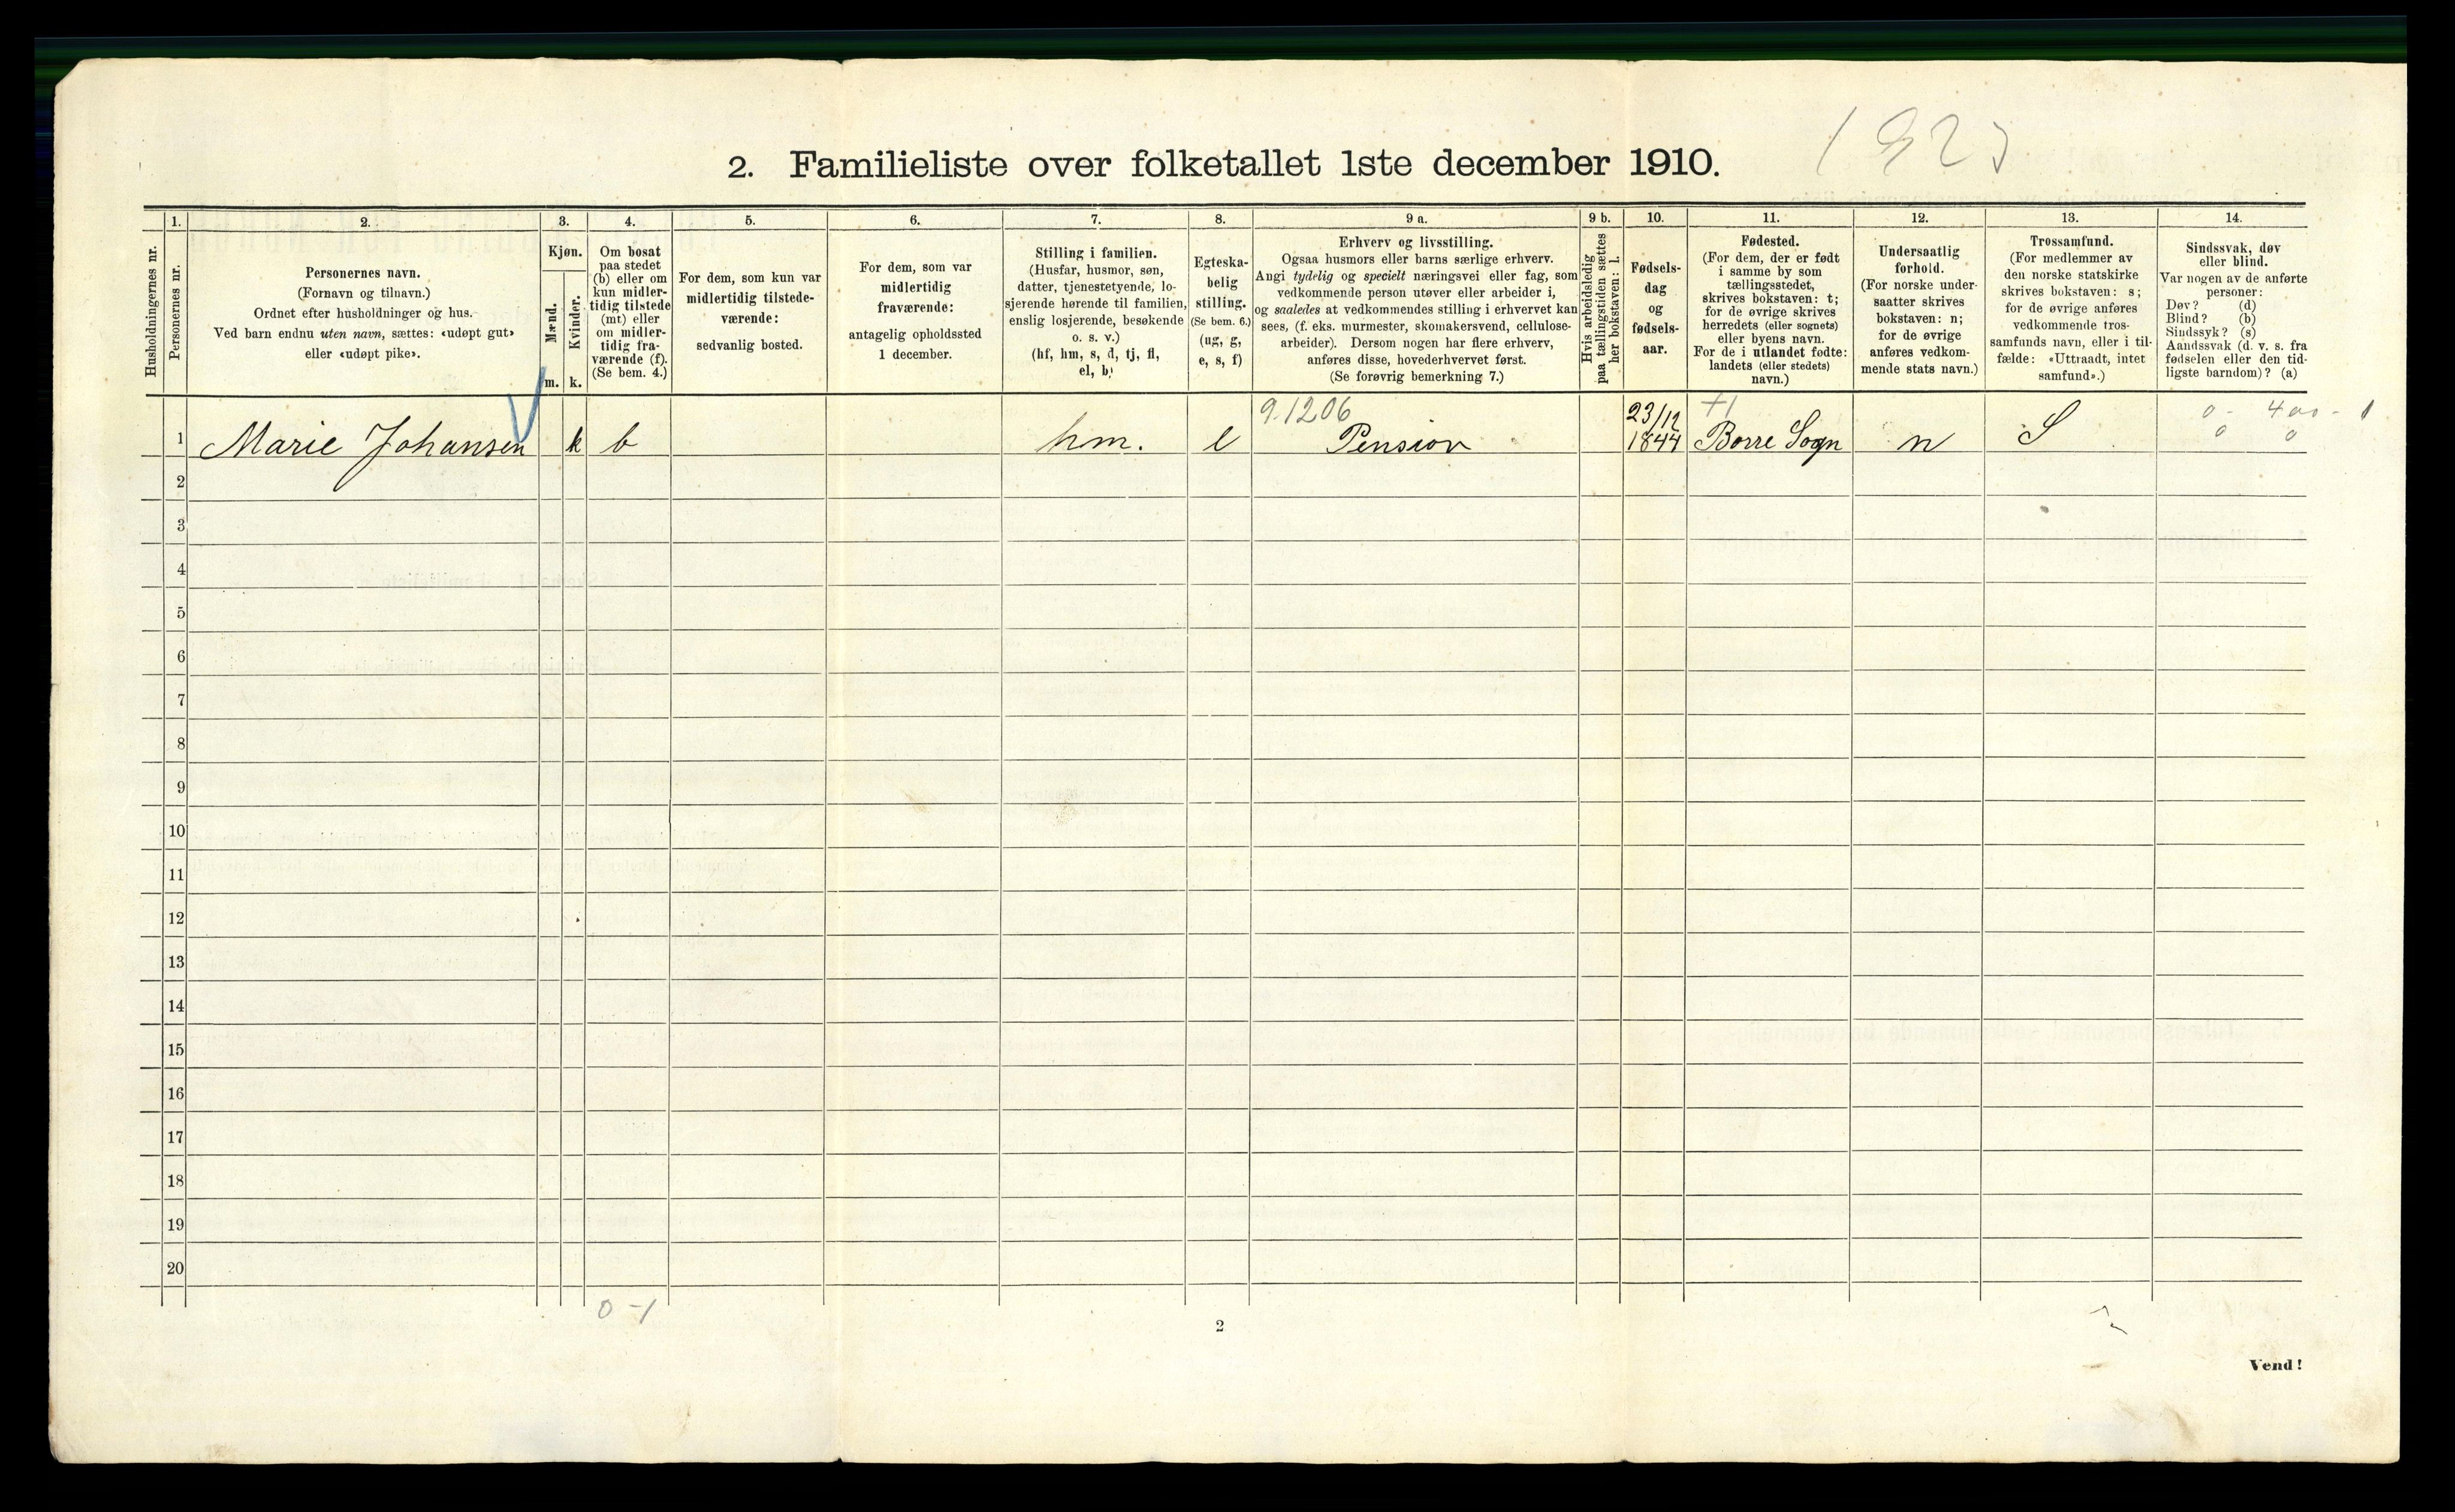 2. Familieliste over folketallet 1ste december 1910.
1.
2.
3.
4.
5.
6.
7.
8.
9 a.
9 b.
10.
11.
12.
13.
14.
Husholdningernes nr.
Personernes nr.
Personernes navn.
(Fornavn og tilnavn.)
Ordnet efter husholdninger og hus.
Ved barn endnu uten navn, sættes: «udøpt gut»
eller «udøpt pike».
Kjøn.
Mænd.
Kvinder.
m.
k.
Om bosat
paa stedet
(b) eller om
kun midler-
tidig tilstede
(mt) eller
om midler-
tidig fra-
værende (f).
(Se bem. 4.)
For dem, som kun var
midlertidig tilstede-
værende:
sedvanlig bosted.
For dem, som var
midlertidig
fraværende:
antagelig opholdssted
1 december.
Stilling i familien.
(Husfar, husmor, søn,
datter, tjenestetyende, lo-
sjerende hørende til familien,
enslig losjerende, besøkende
o. s. v.)
(hf, hm, s, d, tj, fl,
el, b)
Egteska-
belig
stilling.
(Se bem. 6.)
(ug, g,
e, s, f)
Erhverv og livsstilling.
Ogsaa husmors eller barns særlige erhverv.
Angi tydelig og specielt næringsvei eller fag, som
vedkommende person utøver eller arbeider i,
og saaledes at vedkommendes stilling i erhvervet kan
sees, (f. eks. murmester, skomakersvend, cellulose-
arbeider). Dersom nogen har flere erhverv,
anføres disse, hovederhvervet først.
(Se forøvrig bemerkning 7.)
Hvis arbeidsledig
paa tællingstiden sættes
her bokstaven: l.
Fødsels-
dag
og
fødsels-
aar.
Fødested.
(For dem, der er født
i samme by som
tællingsstedet,
skrives bokstaven: t;
for de øvrige skrives
herredets (eller sognets)
eller byens navn.
For de i utlandet fødte:
landets (eller stedets)
navn.)
Undersaatlig
forhold.
(For norske under-
saatter skrives
bokstaven: n;
for de øvrige
anføres vedkom-
mende stats navn.)
Trossamfund.
(For medlemmer av
den norske statskirke
skrives bokstaven: s;
for de øvrige anføres
vedkommende tros-
samfunds navn, eller i til-
fælde: «Uttraadt, intet
samfund».)
Sindssvak, døv
eller blind.
Var nogen av de anførte
personer:
Døv? (d)
Blind? (b)
Sindssyk? (s)
Aandssvak (d. v. s. fra
fødselen eller den tid-
ligste barndom)? (a)
9.1206
23/12
0 - 400 - 1
1 Marie Johansen k b hm. e Pension 1844 Borre Sogn n S 0 0
2
3
4
5
6
7
8
9
10
11
12
13
14
15
16
17
18
19
20
0 - 1
2
Vend!